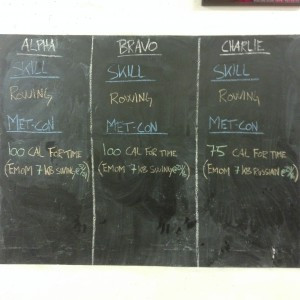 ALPHA
SKILL
ROWING
MET-CON
100 CAL FOR TIME
(EMOM 7 KB SWING
BRAVO
SKILL
ROWING
MET-CON
100 CAL FOR TIME
(EMOM 7 KB SWING
CHARLIE
SKILL
ROWING
MET-CON
75 CAL FOR TIME
(EMOM 7 KB RUSSIAN